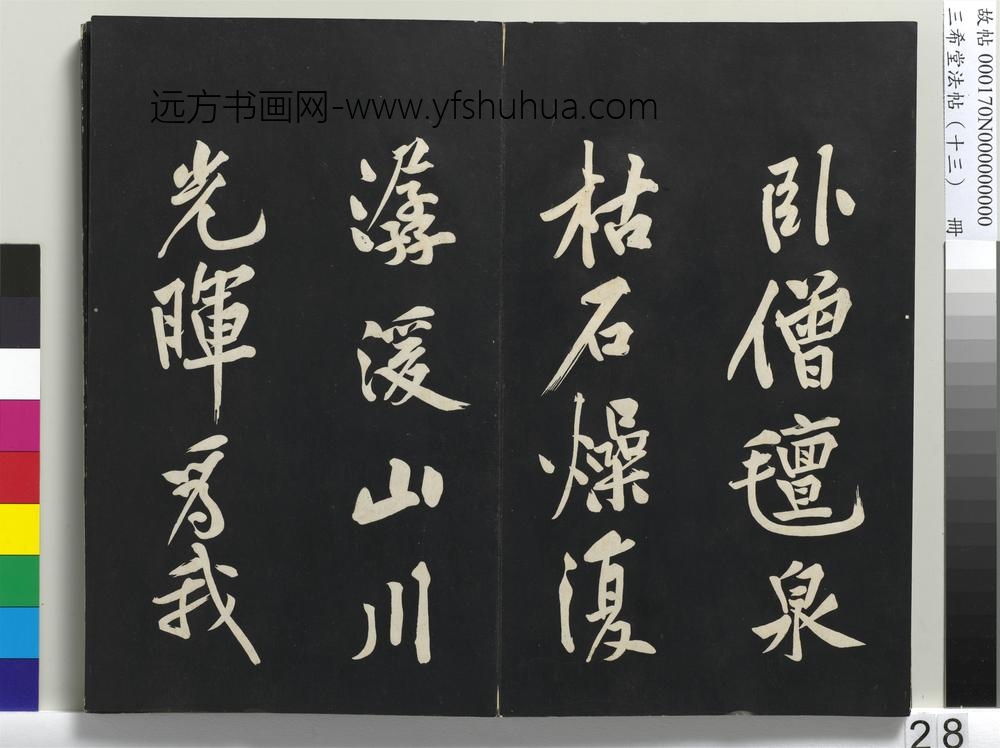 卧僧氊泉
枯石燥復
潺湲山川
光暉為我
远方书画网-www.yfshuhua.com
故帖 000170N000000000
三希堂法帖（十三） 册
28